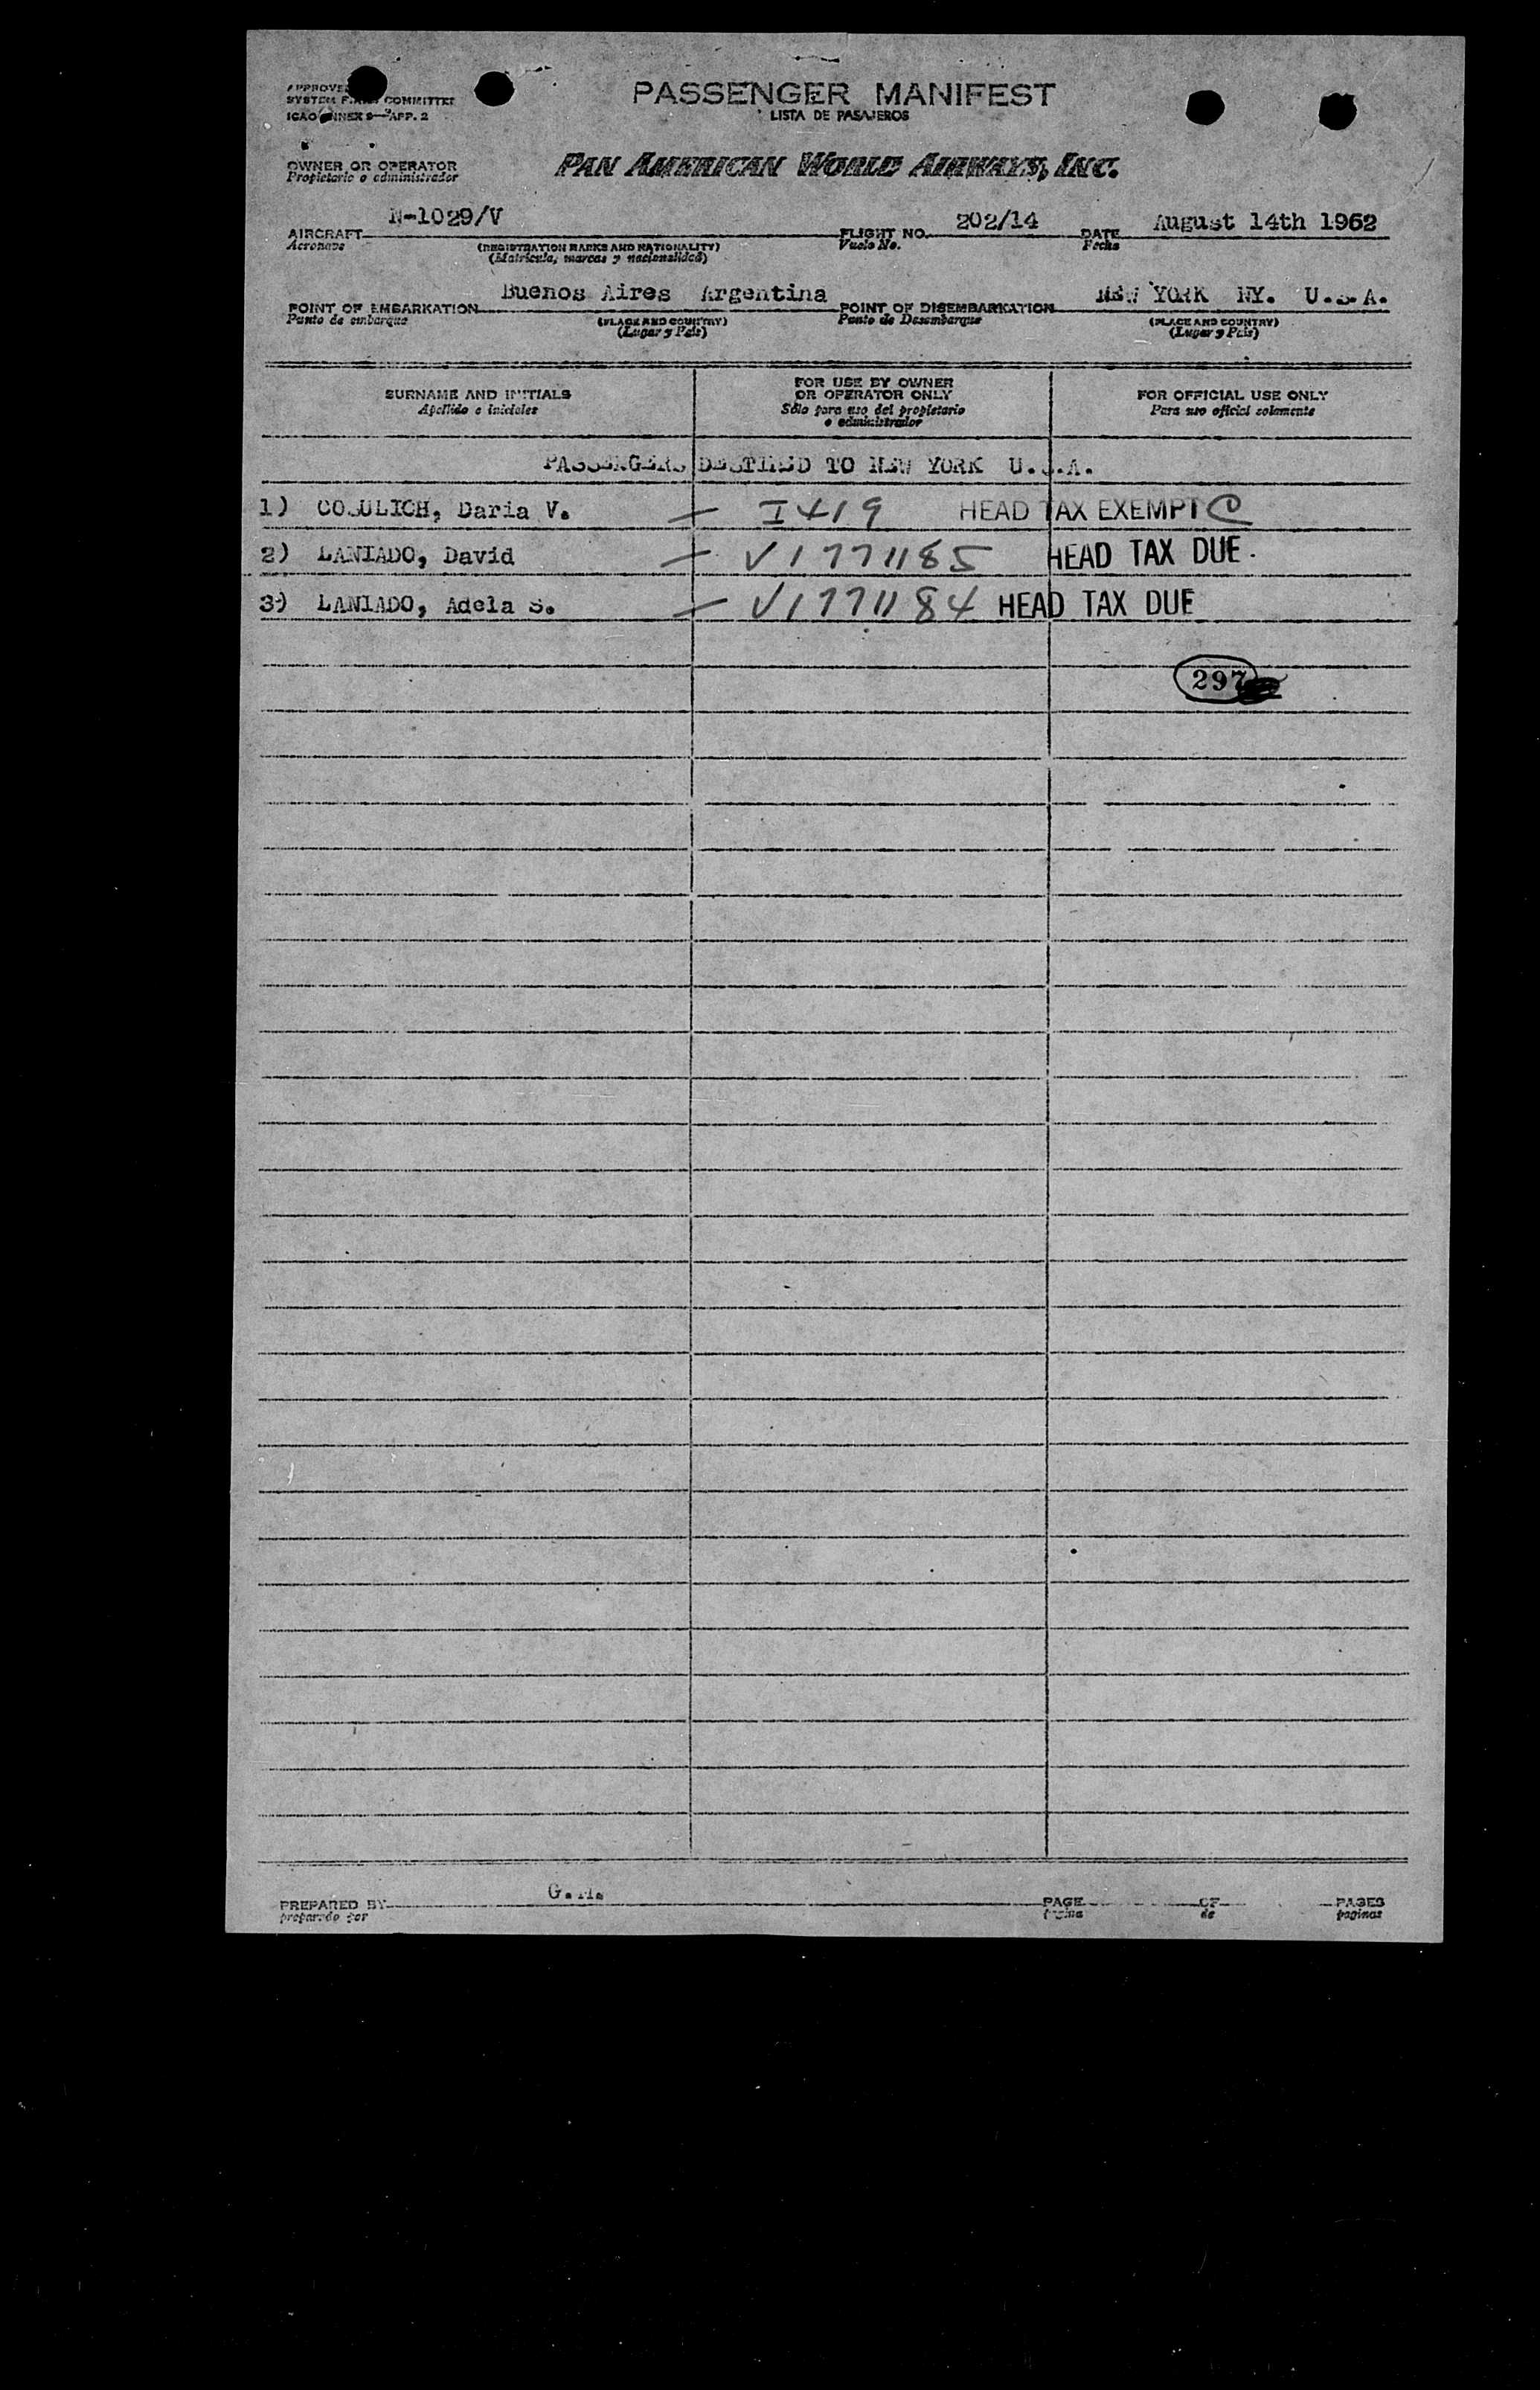 PASSENGER MANIFEST
LISTA DE PASAJEROS
SYSTEM COMMITTEE
ICAO ANNEX 9—APP. 2
OWNER OR OPERATOR
Propietario o administrador
PAN AMERICAN WORLD AIRWAYS, INC.
AIRCRAFT N-1029/V FLIGHT NO. 202/14 DATE August 14th 1952
Aeronave (REGISTRATION MARKS AND NATIONALITY) Vuelo No. Fecha
(Matricula, marcas y nacionalidad)
POINT OF EMBARKATION Buenos Aires Argentina POINT OF DISEMBARKATION NEW YORK NY. U.S.A.
Punto de embarque (PLACE AND COUNTRY) Punto de Desembarque (PLACE AND COUNTRY)
(Lugar y Pais) (Lugar y Pais)
SURNAME AND INITIALS
Apellido e iniciales
FOR USE BY OWNER
OR OPERATOR ONLY
Sólo para uso del propietario
o administrador
FOR OFFICIAL USE ONLY
Para uso oficial solamente
PASSENGERS DESTINED TO NEW YORK U.S.A.
1) COSULICH, Daria V. — I419 HEAD TAX EXEMPT C
2) LANIADO, David — V1771185 HEAD TAX DUE.
3) LANIADO, Adela S. — V1771184 HEAD TAX DUE
297
PREPARED BY PAGE OF PAGES
preparado por pagina de paginas